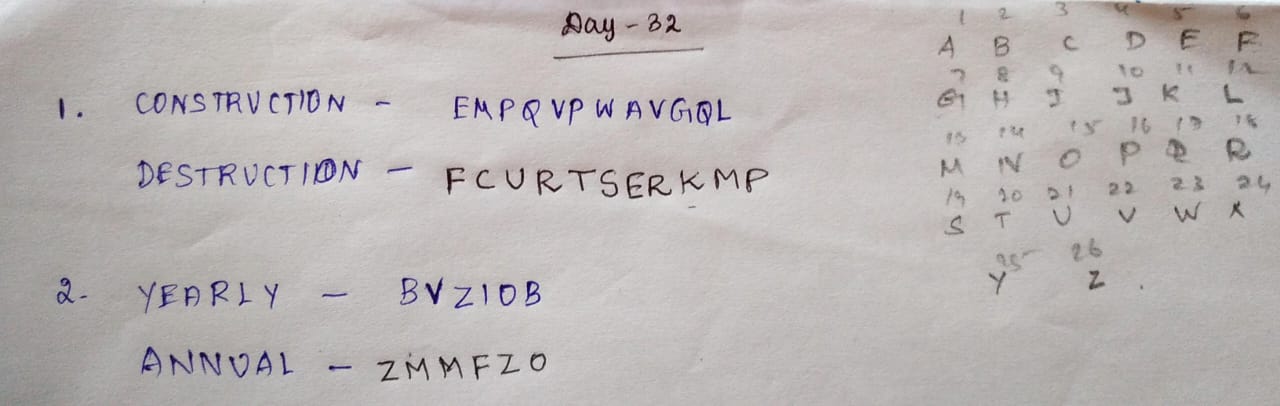 Day - 32
1. CONSTRUCTION - EMPQVPWAVGQL
DESTRUCTION - FCURTSERKMP
2- YEARLY - BVZIOB
ANNUAL - ZMMFZO
1 2 3 4 5 6
A B C D E F
7 8 9 10 11 12
G H I J K L
13 14 15 16 17 18
M N O P Q R
19 20 21 22 23 24
S T U V W X
25 26
Y Z .